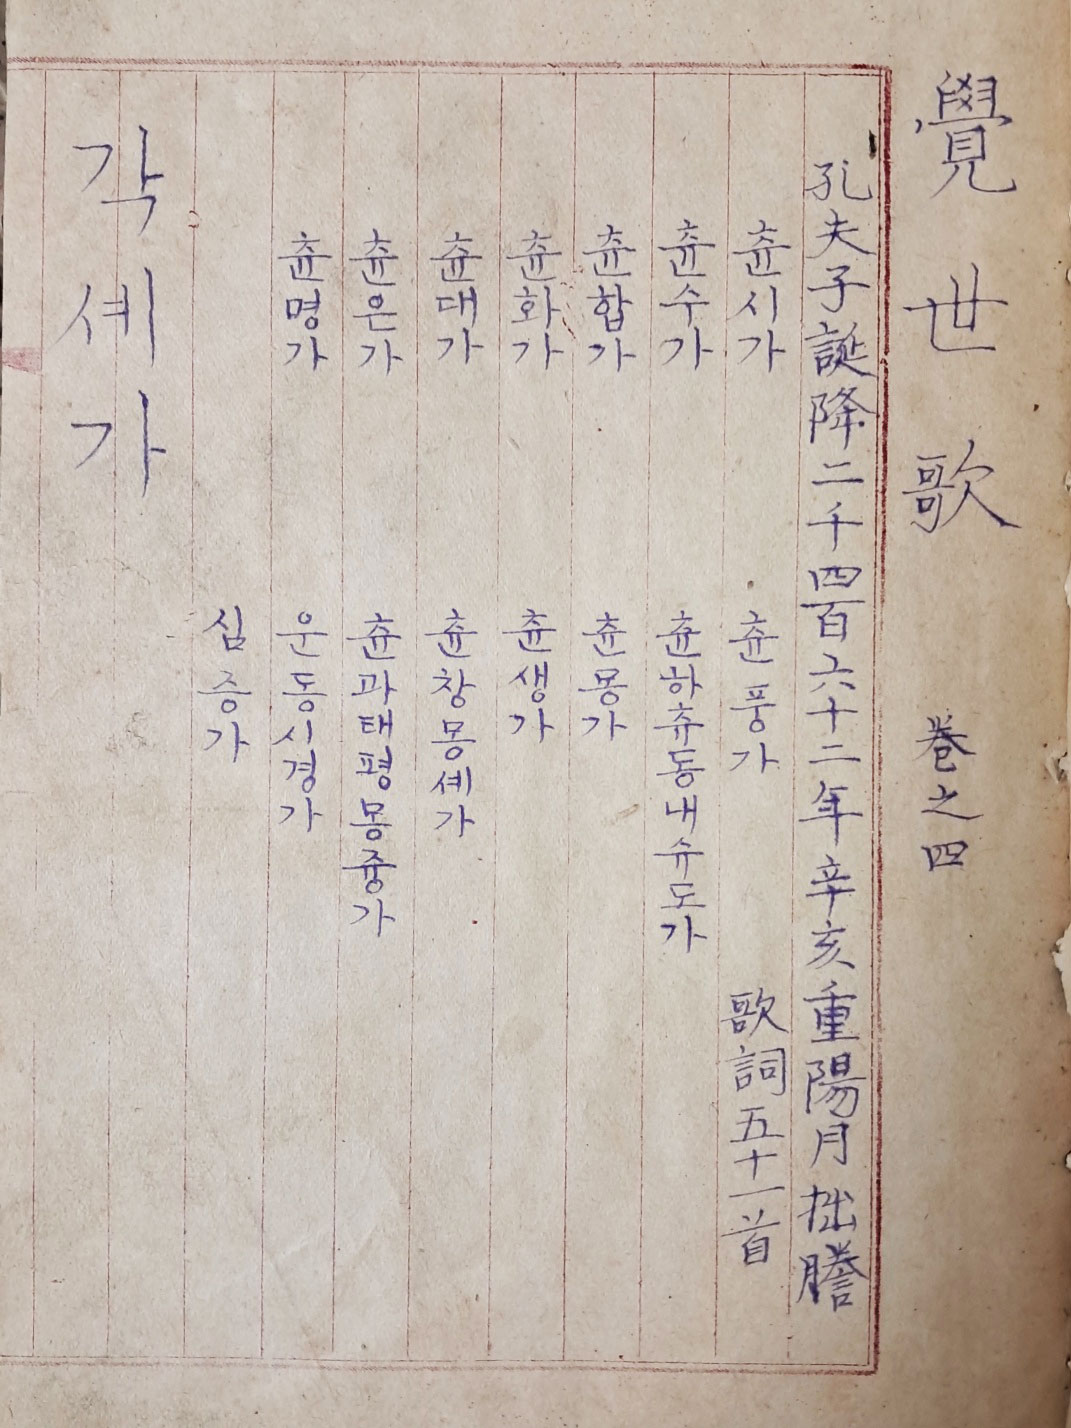 覺世歌 卷之四
孔夫子誕降二千四百六十二年辛亥重陽月拙謄
츈시가 츈풍가 歌詞五十一首
츈수가 츈하츄동내슈도가
츈합가 츈몽가
츈화가 츈생가
츈대가 츈창몽셰가
츈은가 츈과태평몽즁가
츈명가 운동시경가
심증가
각셰가